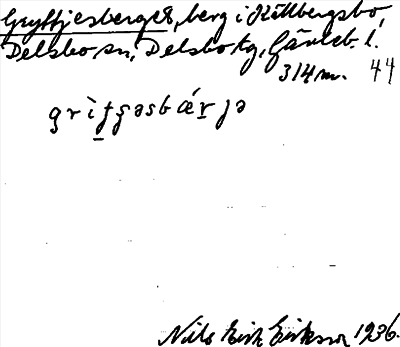 Gryftjesberget, berg i Källbergsbo,
Delsbo sn, Delsbo tg, Gävleb. l.
314 m. 44
grìftjəsbǽrjə
Nils Erik Eriksson 1936.